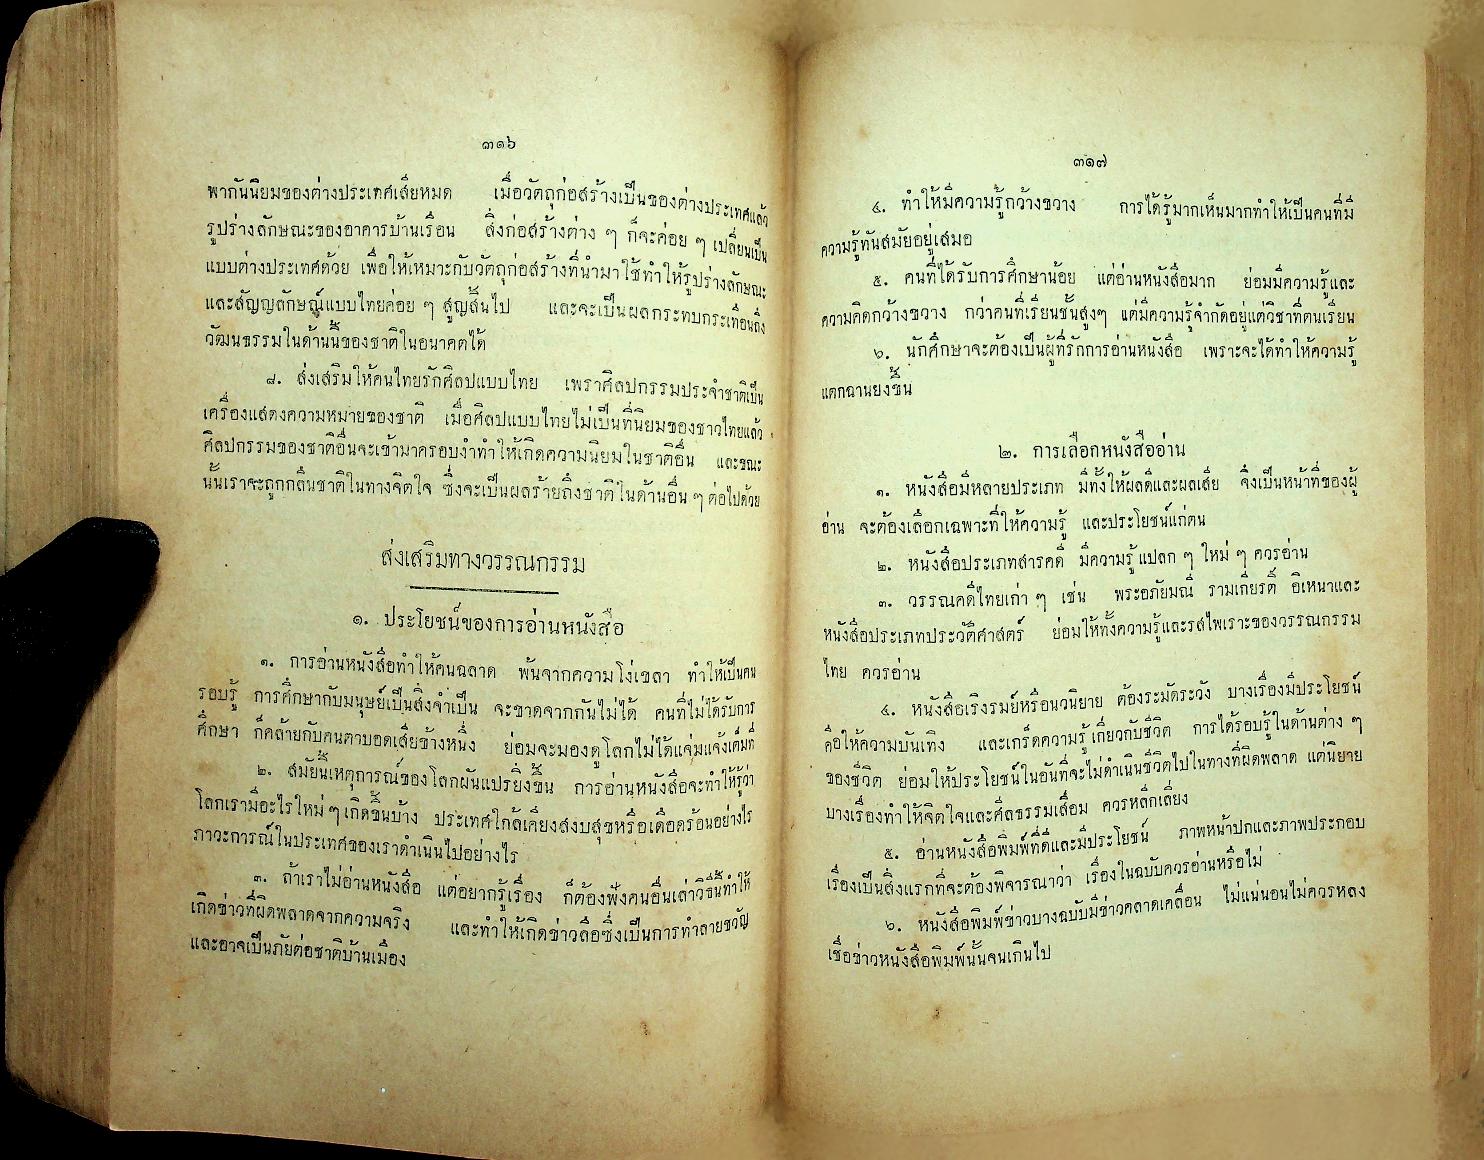 ๓๑๖
พากันนิยมของต่างประเทศเสียหมด เมื่อวัตถุก่อสร้างเป็นของต่างประเทศแล้ว
รูปร่างลักษณะของอาคารบ้านเรือน สิ่งก่อสร้างต่าง ๆ ก็จะค่อย ๆ เปลี่ยนเป็น
แบบต่างประเทศด้วย เพื่อให้เหมาะกับวัตถุก่อสร้างที่นำมาใช้ทำให้รูปร่างลักษณะ
และสัญญลักษณ์แบบไทยค่อย ๆ สูญสิ้นไป และจะเป็นผลกระทบกระเทือนถึง
วัฒนธรรมในด้านนี้ของชาติในอนาคตได้
๘. ส่งเสริมให้คนไทยรักศิลปแบบไทย เพราศิลปกรรมประจำชาติเป็น
เครื่องแสดงความหมายของชาติ เมื่อศิลปแบบไทยไม่เป็นที่นิยมของชาวไทยแล้ว
ศิลปกรรมของชาติอื่นจะเข้ามาครอบงำทำให้เกิดความนิยมในชาติอื่น และขณะ
นั้นเราจะถูกกลืนชาติในทางจิตใจ ซึ่งจะเป็นผลร้ายถึงชาติในด้านอื่น ๆ ต่อไปด้วย
ส่งเสริมทางวรรณกรรม
๑. ประโยชน์ของการอ่านหนังสือ
๑. การอ่านหนังสือทำให้คนฉลาด พ้นจากความโง่เขลา ทำให้เป็นคน
รอบรู้ การศึกษากับมนุษย์เป็นสิ่งจำเป็น จะขาดจากกันไม่ได้ คนที่ไม่ได้รับการ
ศึกษา ก็คล้ายกับคนตาบอดเสียข้างหนึ่ง ย่อมจะมองดูโลกไม่ได้แจ่มแจ้งเต็มที่
๒. สมัยนี้เหตุการณ์ของโลกผันแปรยิ่งขึ้น การอ่านหนังสือจะทำให้รู้ว่า
โลกเรามีอะไรใหม่ ๆ เกิดขึ้นบ้าง ประเทศใกล้เคียงสงบสุขหรือเดือดร้อนอย่างไร
ภาวะการณ์ในประเทศของเราดำเนินไปอย่างไร
๓. ถ้าเราไม่อ่านหนังสือ แต่อยากรู้เรื่อง ก็ต้องฟังคนอื่นเล่าวิธีนี้ทำให้
เกิดข่าวที่ผิดพลาดจากความจริง และทำให้เกิดข่าวลือซึ่งเป็นการทำลายขวัญ
และอาจเป็นภัยต่อชาติบ้านเมือง
๓๑๗
๔. ทำให้มีความรู้กว้างขวาง การได้รู้มากเห็นมากทำให้เป็นคนที่มี
ความรู้ทันสมัยอยู่เสมอ
๕. คนที่ได้รับการศึกษาน้อย แต่อ่านหนังสือมาก ย่อมมีความรู้และ
ความคิดกว้างขวาง กว่าคนที่เรียนชั้นสูงๆ แต่มีความรู้จำกัดอยู่แต่วิชาที่ตนเรียน
๖. นักศึกษาจะต้องเป็นผู้ที่รักการอ่านหนังสือ เพราะจะได้ทำให้ความรู้
แตกฉานยิ่งขึ้น
๒. การเลือกหนังสืออ่าน
๑. หนังสือมีหลายประเภท มีทั้งให้ผลดีและผลเสีย จึงเป็นหน้าที่ของผู้
อ่าน จะต้องเลือกเฉพาะที่ให้ความรู้ และประโยชน์แก่ตน
๒. หนังสือประเภทสารคดี มีความรู้แปลก ๆ ใหม่ ๆ ควรอ่าน
๓. วรรณคดีไทยเก่า ๆ เช่น พระอภัยมณี รามเกียรติ์ อิเหนาและ
หนังสือประเภทประวัติศาสตร์ ย่อมให้ทั้งความรู้และรสไพเราะของวรรณกรรม
ไทย ควรอ่าน
๔. หนังสือเริงรมย์หรือนวนิยาย ต้องระมัดระวัง บางเรื่องมีประโยชน์
คือให้ความบันเทิง และเกร็ดความรู้เกี่ยวกับชีวิต การได้รอบรู้ในด้านต่าง ๆ
ของชีวิต ย่อมให้ประโยชน์ในอันที่จะไม่ดำเนินชีวิตไปในทางที่ผิดพลาด แต่นิยาย
บางเรื่องทำให้จิตใจและศีลธรรมเสื่อม ควรหลีกเลี่ยง
๕. อ่านหนังสือพิมพ์ที่ดีและมีประโยชน์ ภาพหน้าปกและภาพประกอบ
เรื่องเป็นสิ่งแรกที่จะต้องพิจารณาว่า เรื่องในฉบับควรอ่านหรือไม่
๖. หนังสือพิมพ์ข่าวบางฉบับมีข่าวคลาดเคลื่อน ไม่แน่นอนไม่ควรหลง
เชื่อข่าวหนังสือพิมพ์นั้นจนเกินไป